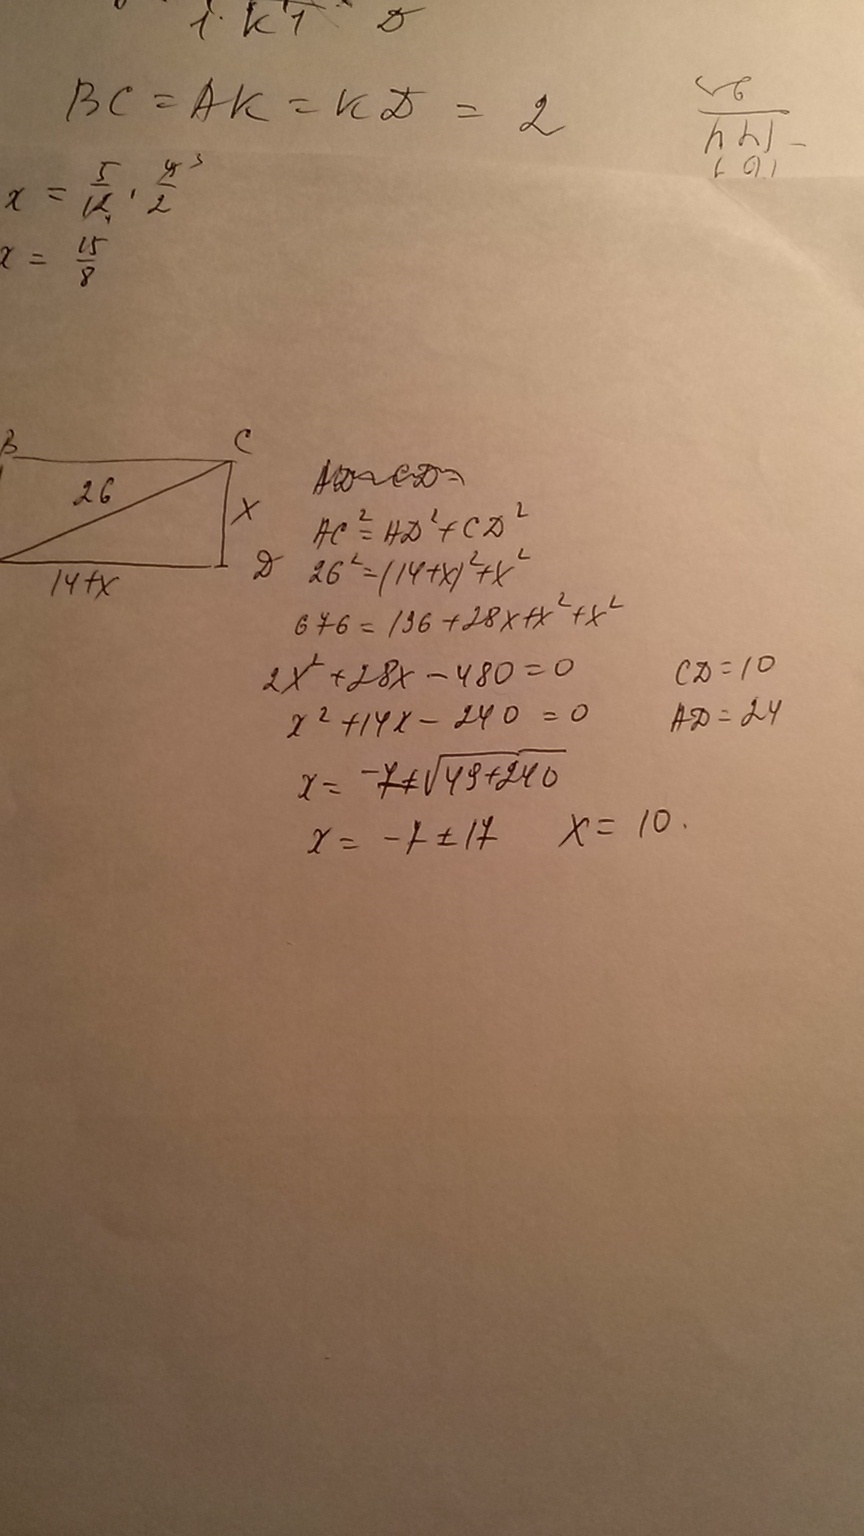 BC = AK = KD = 2
x = 5/12 · 9/2 3
x = 15/8
B C
26
x
14+x D
AC² = AD² + CD²
26² = (14+x)² + x²
676 = 196 + 28x + x² + x²
2x² + 28x − 480 = 0 CD = 10
x² + 14x − 240 = 0 AD = 24
x = −7 ± √49+240
x = −7 ± 17 x = 10.